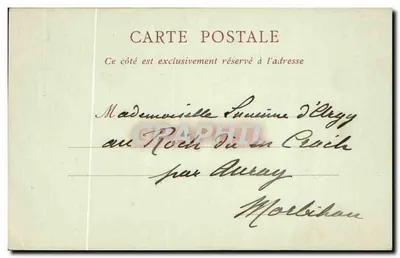 CARTE POSTALE
Ce côté est exclusivement réservé à l'adresse
Mademoiselle Suzanne d'Argy
au Roch du en Crach
par Auray
Morbihan